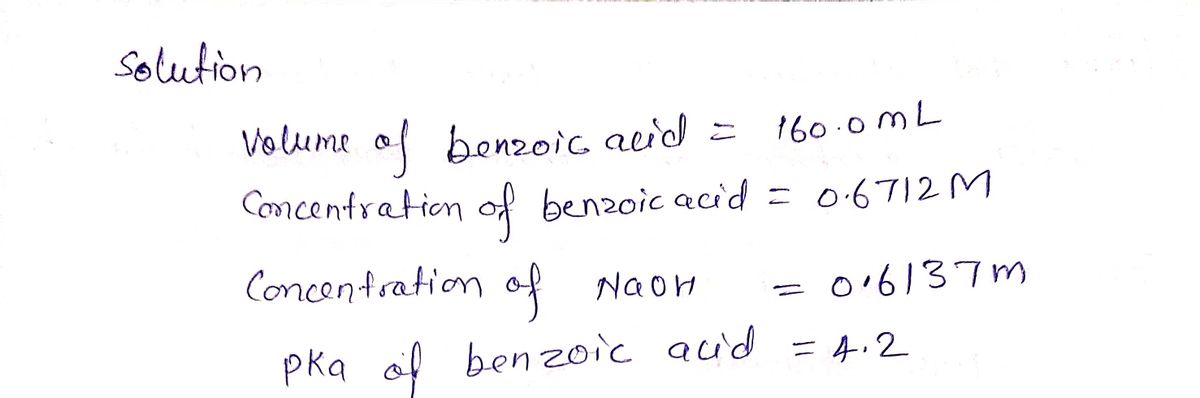 Solution
Volume of benzoic acid = 160.0 mL
Concentration of benzoic acid = 0.6712 M
Concentration of NaOH = 0.6137 m
pKa of benzoic acid = 4.2